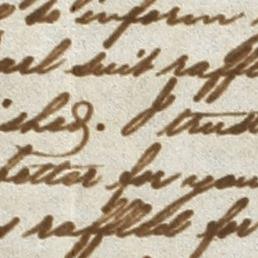 to inform
suit raffl
ished. I trust
better for you
raffled for